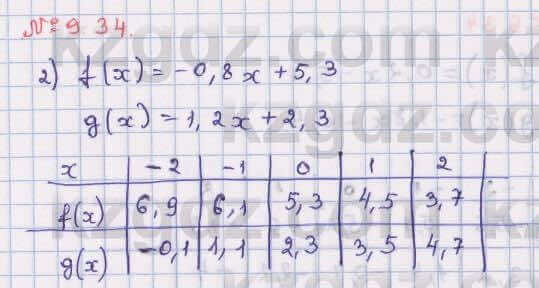 №934.
2) f(x) = -0,8x + 5,3
g(x) = 1,2x + 2,3
x -2 -1 0 1 2
f(x) 6,9 6,1 5,3 4,5 3,7
g(x) -0,1 1,1 2,3 3,5 4,7